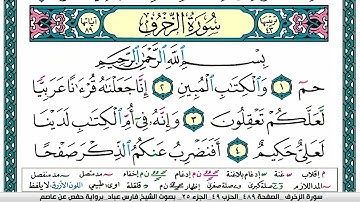 سُورَةُ الزُّخْرُفِ
بِسْمِ اللَّهِ الرَّحْمَٰنِ الرَّحِيمِ
حمٓ ۝١ وَالْكِتَابِ الْمُبِينِ ۝٢ إِنَّا جَعَلْنَاهُ قُرْءَانًا عَرَبِيًّا
لَّعَلَّكُمْ تَعْقِلُونَ ۝٣ وَإِنَّهُ فِي أُمِّ الْكِتَابِ لَدَيْنَا
لَعَلِيٌّ حَكِيمٌ ۝٤ أَفَنَضْرِبُ عَنكُمُ الذِّكْرَ صَفْحًا
سورة الزخرف الصفحة ٤٨٩ الحزب ٤٩ الجزء ٢٥ بصوت الشيخ فارس عباد برواية حفص عن عاصم